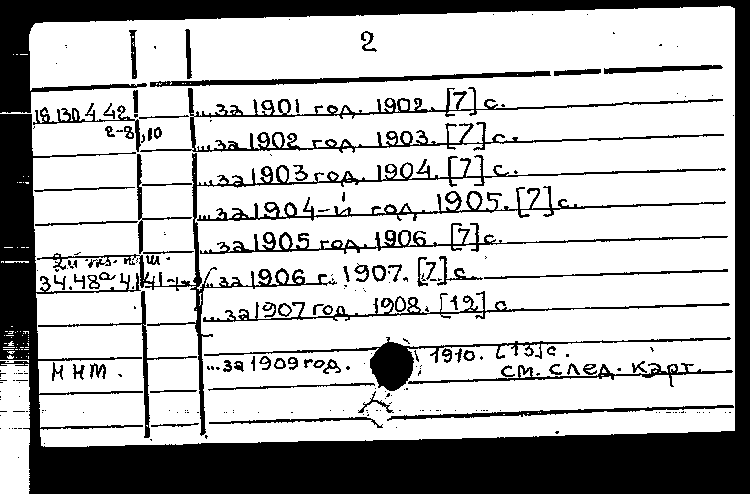 2
18.130.4.42. ...за 1901 год. 1902. [7] с.
2-8,10 ...за 1902 год. 1903. [7] с.
...за 1903 год. 1904. [7] с.
...за 1904-й год. 1905. [7] с.
...за 1905 год. 1906. [7] с.
2й экз.
34.48а.4. ...за 1906 г. 1907. [7] с.
...за 1907 год. 1908. [12] с.
ННТ. ...за 1909 год. 1910. [13] с.
см. след. карт.